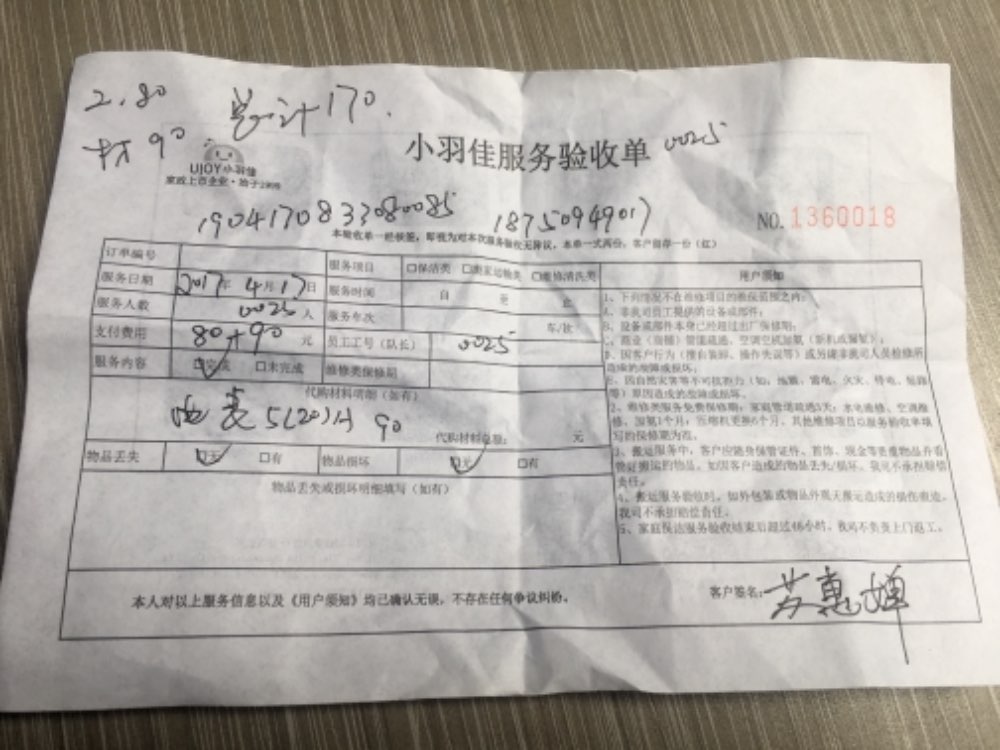 2.80 总计170.
材 90
小羽佳服务验收单 0025
UJOY小羽佳
家政上市企业·始于1998
1904170833080085 18750949017
NO.1360018
本验收单一经接签，即视为对本次服务验收无异议，本单一式两份，客户留存一份（红）
订单编号 服务项目 □保洁类 □搬家运输类 □维修清洗类 用户须知
服务日期 2017年4月17日 服务时间 自 至 止
服务人数 0025 人 服务车次 车/次
支付费用 80+90 元 员工工号（队长） 0025
服务内容 □完成 □未完成 维修类保修期
代购材料明细（如有）
电表5(20)A 90
代购材料总额： 元
物品丢失 □无 □有 物品损坏 □无 □有
物品丢失或损坏明细填写（如有）
1、下列情况不在维修项目的维保范围之内：
A、非我司员工提供的设备或部件；
B、设备或部件本身已经超过出厂保修期；
C、商业（商铺）管道疏通、空调空机加氨（新机或漏氟）；
D、因客户行为（擅自装卸、操作失误等）或另请非我司人员检修所
造成的故障或损坏。
E、因自然灾害等不可抗拒力（如，地震、雷电、火灾、停电、短路
等）原因造成的故障或损坏。
2、维修类服务免费保修期：家庭管道疏通3天；水电维修、空调维
修、加氨1个月；压缩机更换6个月。其他维修项目以服务验收单填
写的保修期为准。
3、搬运服务中，客户应随身保管证件、首饰、现金等贵重物品并看
管好搬运的物品。如因客户造成的物品丢失/损坏，我司不承担赔偿
责任。
4、搬运服务验收时，如外包装或物品外观无搬运造成的损伤痕迹，
我司不承担赔偿责任。
5、家庭保洁服务验收结束后超过48小时，我司不负责上门返工。
本人对以上服务信息以及《用户须知》均已确认无误，不存在任何争议纠纷。
客户签名：苏惠婵